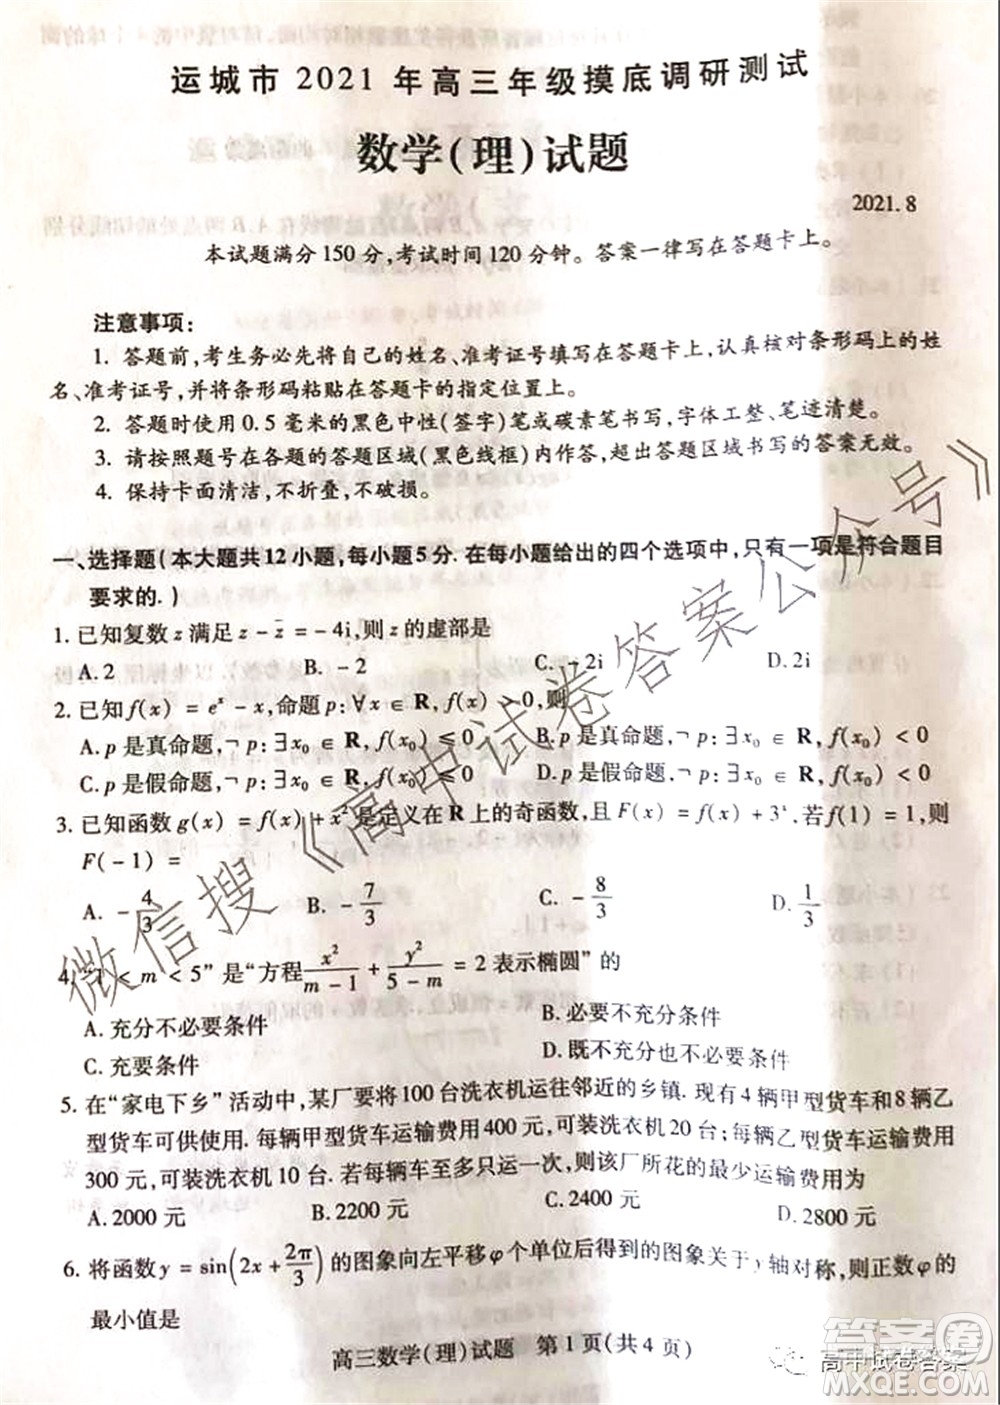 运城市2021年高三年级摸底调研测试
数学(理)试题
2021.8
本试题满分150分,考试时间120分钟。答案一律写在答题卡上。
注意事项:
1. 答题前,考生务必先将自己的姓名、准考证号填写在答题卡上,认真核对条形码上的姓
名、准考证号,并将条形码粘贴在答题卡的指定位置上。
2. 答题时使用0.5毫米的黑色中性(签字)笔或碳素笔书写,字体工整、笔迹清楚。
3. 请按照题号在各题的答题区域(黑色线框)内作答,超出答题区域书写的答案无效。
4. 保持卡面清洁,不折叠,不破损。
一、选择题(本大题共12小题,每小题5分.在每小题给出的四个选项中,只有一项是符合题目
要求的.)
1. 已知复数z满足z - z̄ = -4i,则z的虚部是
A. 2 B. -2 C. -2i D. 2i
2. 已知f(x) = eˣ - x,命题p:∀x ∈ R,f(x) > 0,则
A. p是真命题,¬p:∃x₀ ∈ R,f(x₀) ≤ 0 B. p是真命题,¬p:∃x₀ ∈ R,f(x₀) < 0
C. p是假命题,¬p:∃x₀ ∈ R,f(x₀) ≤ 0 D. p是假命题,¬p:∃x₀ ∈ R,f(x₀) < 0
3. 已知函数g(x) = f(x) + x²是定义在R上的奇函数,且F(x) = f(x) + 3ˣ.若f(1) = 1,则
F(-1) =
A. -4/3 B. -7/3 C. -8/3 D. 1/3
4. “1 < m < 5”是“方程x²/(m-1) + y²/(5-m) = 2表示椭圆”的
A. 充分不必要条件 B. 必要不充分条件
C. 充要条件 D. 既不充分也不必要条件
5. 在“家电下乡”活动中,某厂要将100台洗衣机运往邻近的乡镇.现有4辆甲型货车和8辆乙
型货车可供使用.每辆甲型货车运输费用400元,可装洗衣机20台;每辆乙型货车运输费用
300元,可装洗衣机10台.若每辆车至多只运一次,则该厂所花的最少运输费用为
A. 2000元 B. 2200元 C. 2400元 D. 2800元
6. 将函数y = sin(2x + 2π/3)的图象向左平移φ个单位后得到的图象关于y轴对称,则正数φ的
最小值是
高三数学(理)试题 第1页(共4页)
微信搜《高中试卷答案公众号》
高中试卷答案
答案圈
MXQE.COM